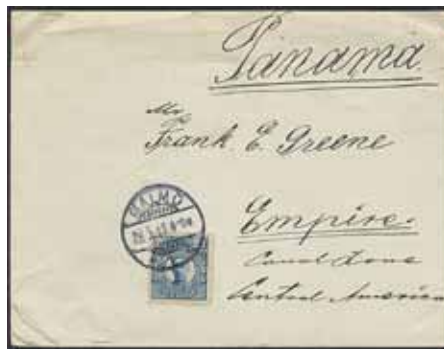 Panama
Mr
Frank E. Greene
MALMÖ
Empire.
Canal Zone
Central America